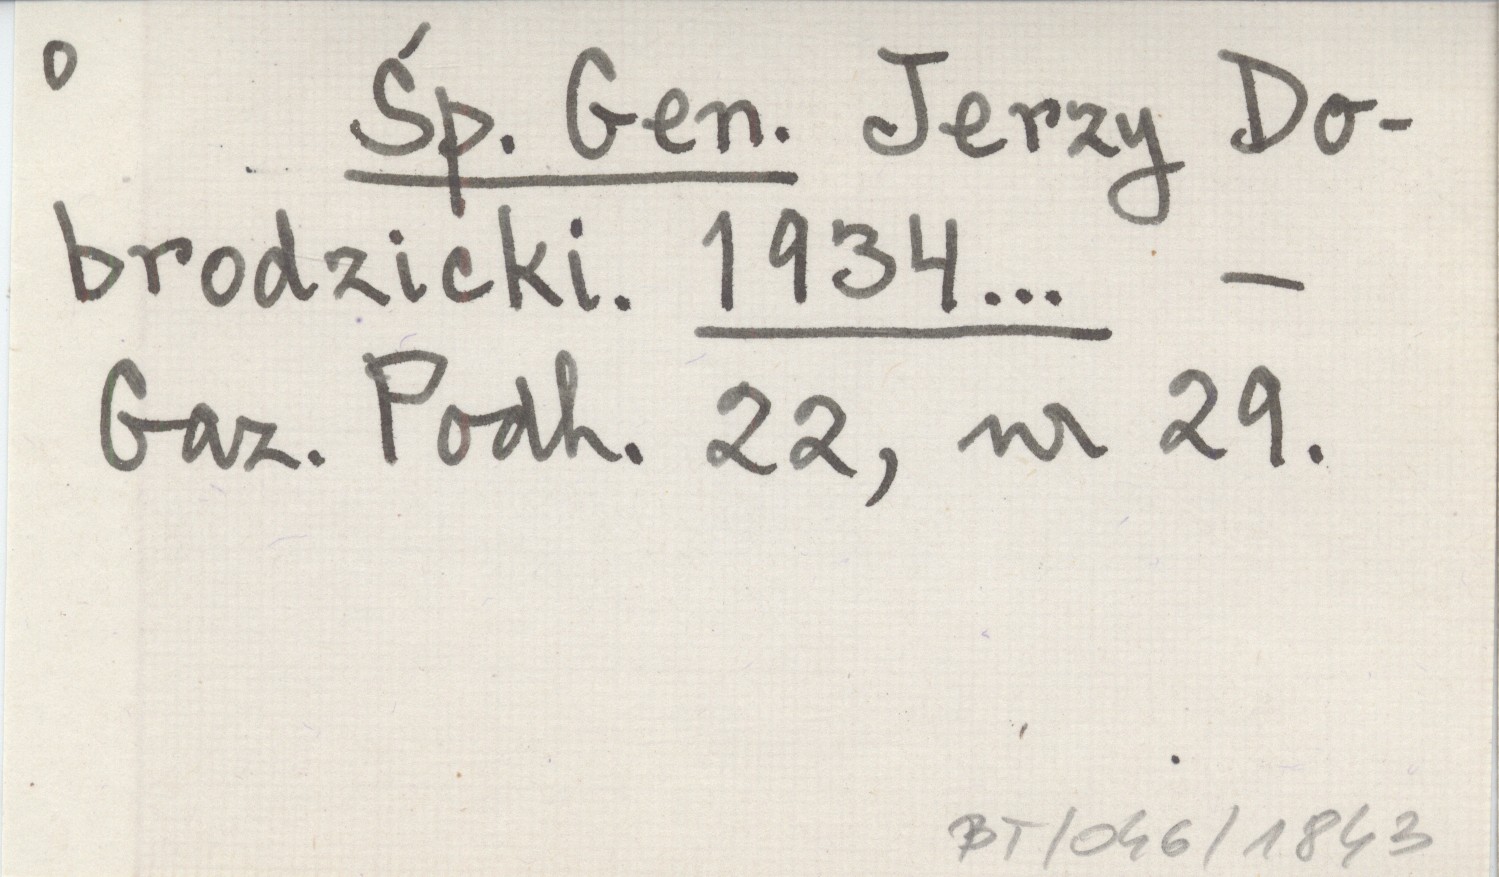 o Śp. Gen. Jerzy Do-
brodzicki. 1934... –
Gaz. Podh. 22, nr 29.
BT/046/1843